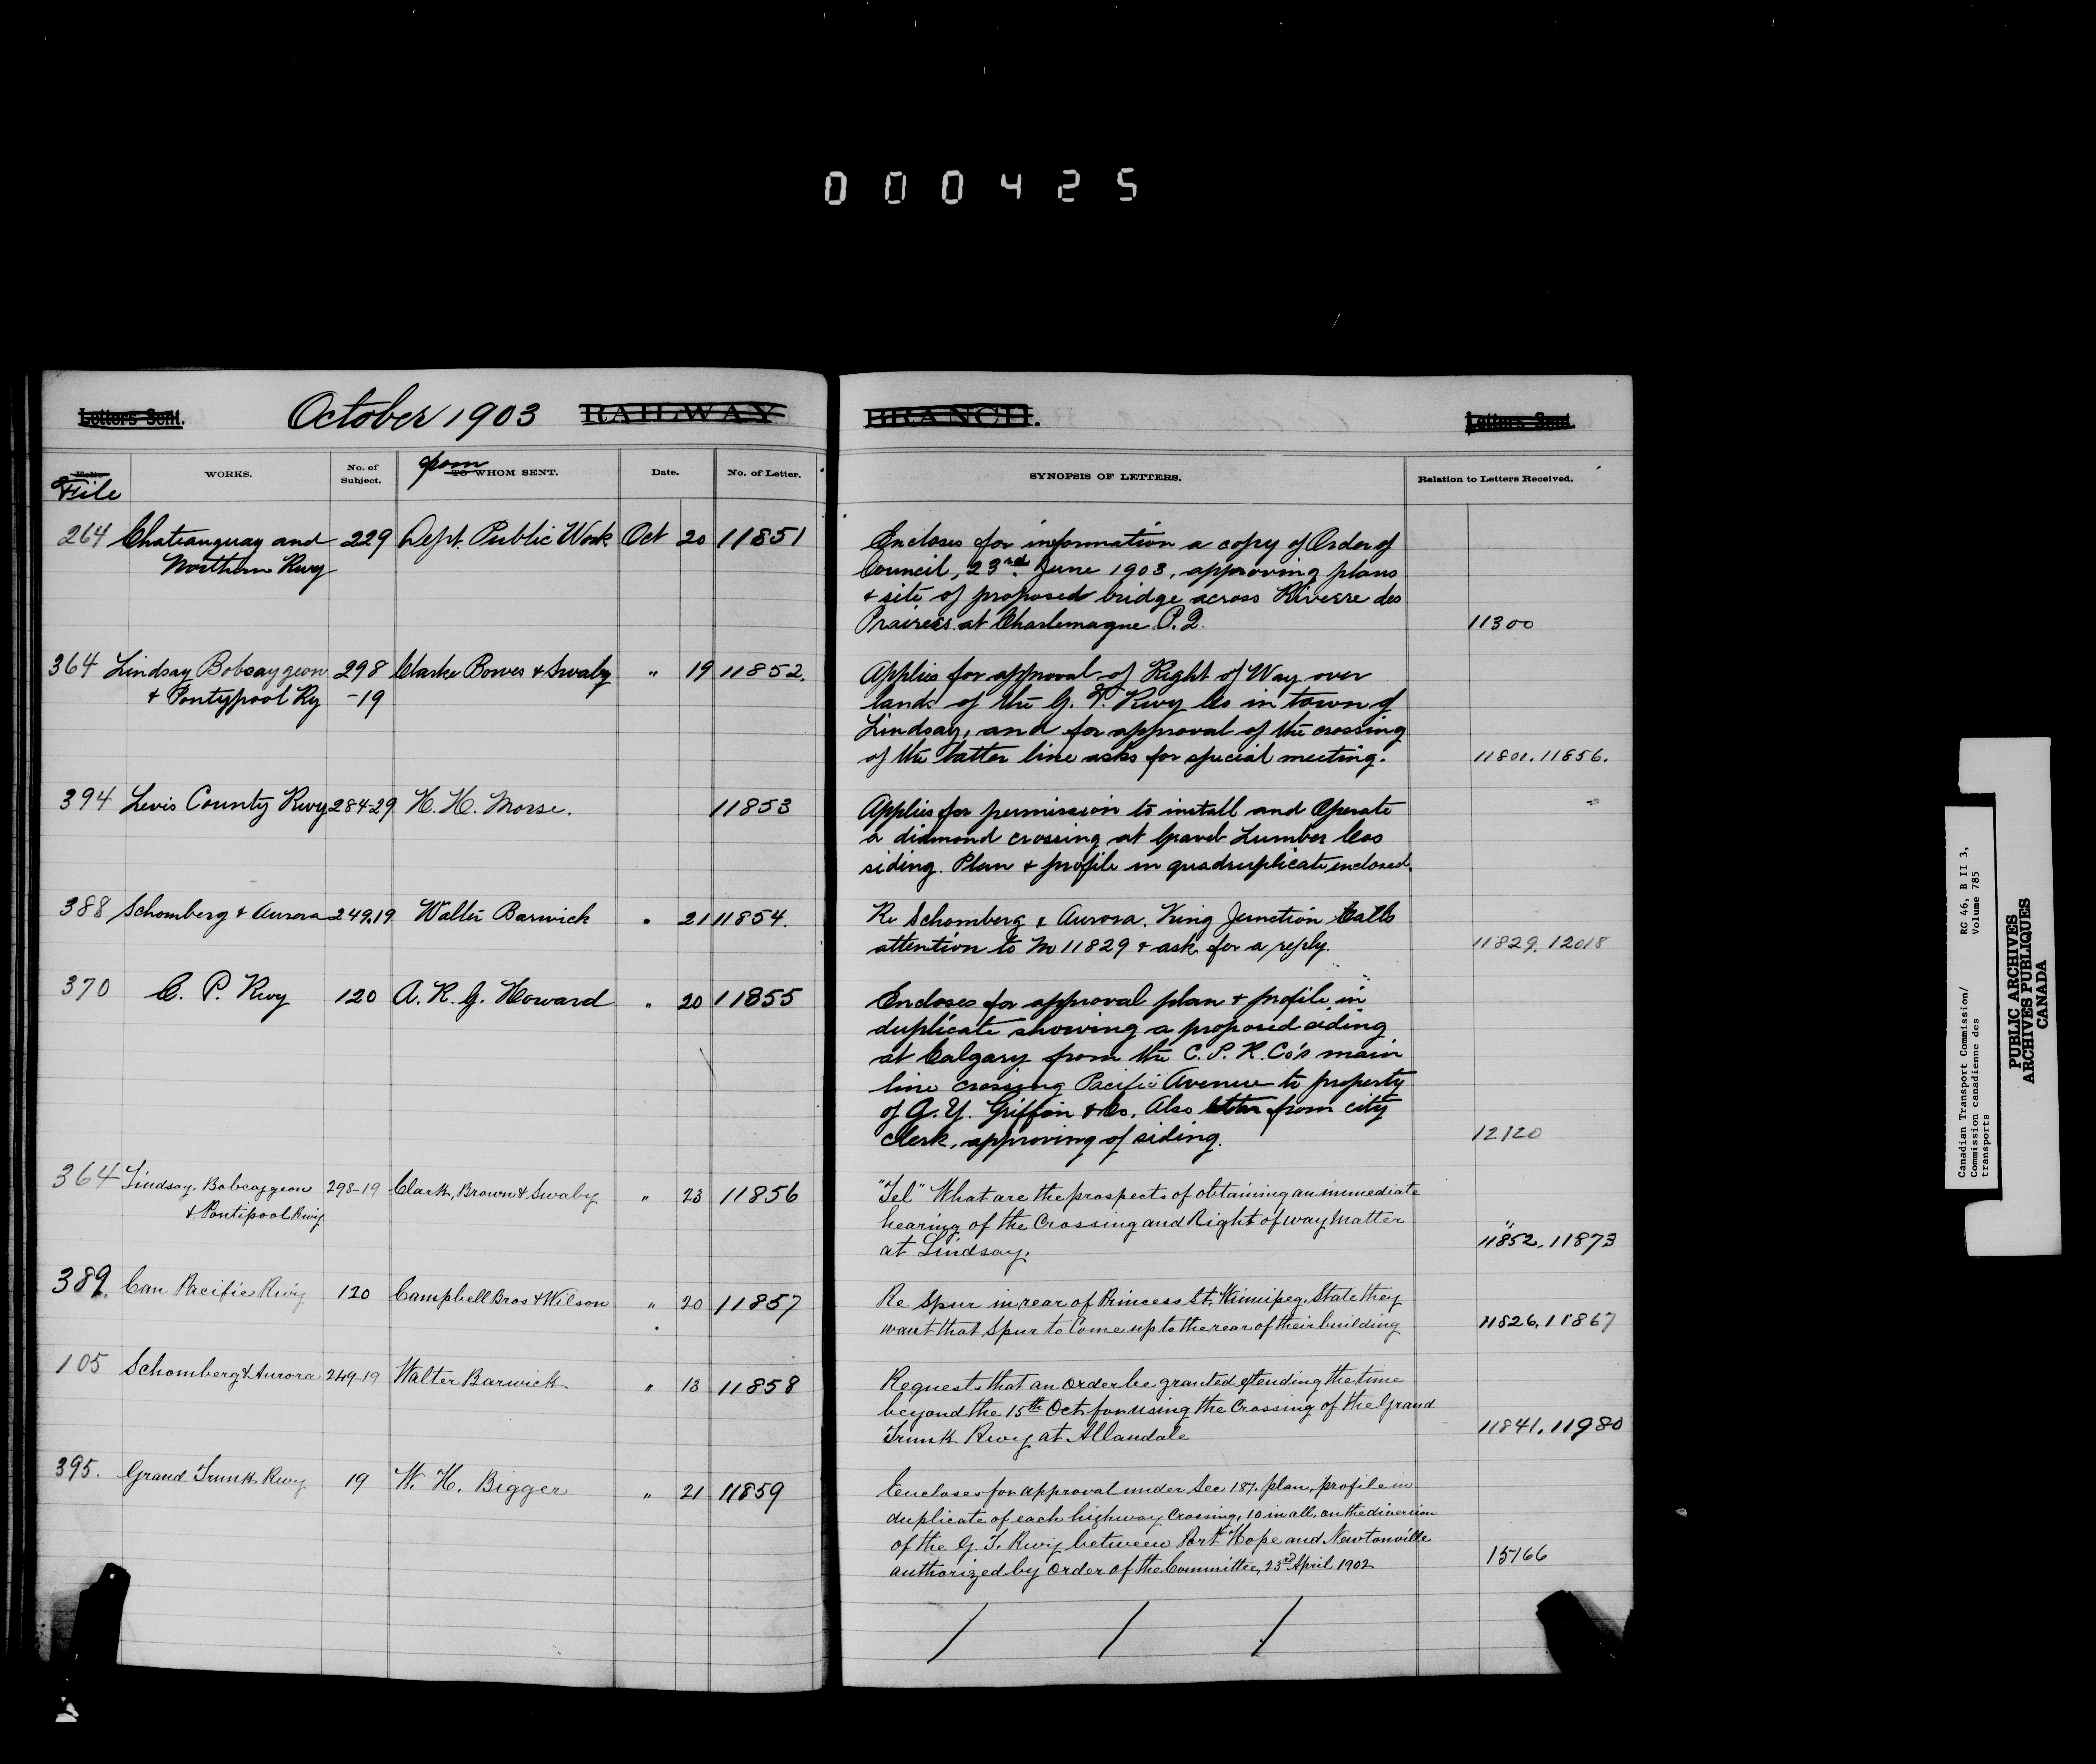 000425
Letters Sent. October 1903 RAILWAY BRANCH. Letters Sent.
File WORKS. No. of Subject. from TO WHOM SENT. Date. No. of Letter. SYNOPSIS OF LETTERS. Relation to Letters Received.
264 Chateauguay and 229 Dept. Public Work Oct 20 11851 Encloses for information a copy of Order of
Northern Rwy Council, 23rd June 1903, approving plans
& site of proposed bridge across Riviere des
Prairies at Charlemagne P.Q. 11300
364 Lindsay Bobcaygeon 298 Clarke Bowes & Swaby " 19 11852. Applies for approval of Right of Way over
& Pontypool Ry -19 lands of the G. T. Rwy Co in town of
Lindsay, and for approval of the crossing
of the latter line asks for special meeting. 11801. 11856.
394 Levis County Rwy 284-29 H. H. Morse. 11853 Applies for permission to install and Operate
a diamond crossing at Gravel Lumber Cos
siding. Plan & profile in quadruplicate enclosed.
388 Schomberg & Aurora 249.19 Walter Barwick " 21 11854. Re Schomberg & Aurora. King Junction Calls
attention to No 11829 & ask for a reply. 11829. 12018
370 C. P. Rwy 120 A. R. G. Howard " 20 11855 Encloses for approval plan & profile in
duplicate showing a proposed siding
at Calgary from the C. P. R. Co's main
line crossing Pacific Avenue to property
of G. Y. Griffin & Co. Also letter from city
clerk, approving of siding. 12120
364 Lindsay, Bobcaygeon 298-19 Clark, Brown & Swaby " 23 11856 "Tel" What are the prospects of obtaining an immediate
& Pontipool Rwy hearing of the Crossing and Right of way matter
at Lindsay. 11852, 11873
389. Can Pacific Rwy 120 Campbell Bros & Wilson " 20 11857 Re Spur in rear of Princess St. Winnipeg. State they
want that Spur to Come up to the rear of their building 11826, 11867
105 Schomberg & Aurora 249-19 Walter Barwick " 13 11858 Requests that an order be granted extending the time
beyond the 15th Oct. for using the Crossing of the Grand
Trunk Rwy at Allandale 11841. 11980
395. Grand Trunk Rwy 19 W. H. Bigger " 21 11859 Encloses for approval under Sec 187. plan, profile in
duplicate of each highway Crossing, 10 in all, on the diversion
of the G. T. Rwy between Port Hope and Newtonville
authorized by Order of the Committee, 23rd April 1902 15766
Canadian Transport Commission/ RG 46, B II 3,
Commission canadienne des Volume 785
transports
PUBLIC ARCHIVES
ARCHIVES PUBLIQUES
CANADA